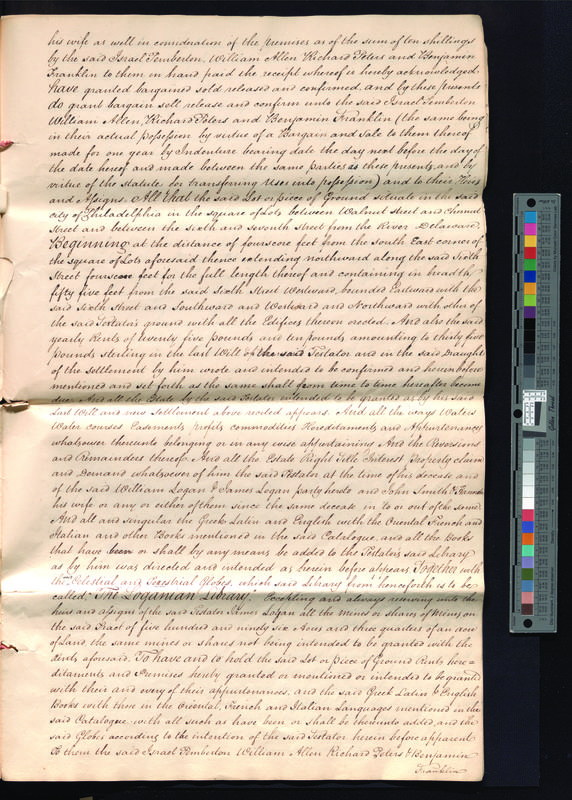 his wife as well in consideration of the premises as of the sum of ten shillings
by the said Israel Pemberton, William Allen Richard Peters and Benjamin
Franklin to them in hand paid the receipt whereof is hereby acknowledged
have granted bargained sold released and confirmed and by these presents
do grant bargain sell release and confirm unto the said Israel Pemberton
William Allen, Richard Peters and Benjamin Franklin (the same being
in their actual possession by virtue of a Bargain and Sale to them thereof
made for one year by Indenture bearing date the day next before the day of
the date hereof and made between the same parties as these presents and by
virtue of the statute for transferring uses into possession) and to their Heirs
and Assigns. All that the said Lot or piece of Ground situate in the said
city of Philadelphia in the square of Lots between Walnut Street and Chesnut
Street and between the sixth and seventh street from the River Delaware
Beginning at the distance of fourscore feet from the South East corner of
the square of Lots aforesaid thence extending northward along the said Sixth
Street fourscore feet for the full length thereof and containing in breadth
fifty five feet from the said Sixth Street Westward, bounded Eastward with the
said Sixth Street and Southward and Westward and Northward with other of
the said Testator's ground with all the Edifices thereon erected. And also the said
yearly Rents of twenty five pounds and ten pounds amounting to thirty five
pounds sterling in the last Will of the said Testator and in the said Draught
of the settlement by him wrote and intended to be confirmed and herein before
mentioned and set forth as the same shall from time to time hereafter become
due. And all the Estate by the said Testator intended to be granted as by his said
Last Will and new Settlement above recited appears. And all the ways Waters
Water courses Easements profits commodities Hereditaments and Appurtenances
whatsoever thereunto belonging or in any wise appertaining And the Reversions
and Remainders thereof. And all the Estate Right Title Interest Property claim
and Demand whatsoever of him the said Testator at the time of his decease and
of the said William Logan & James Logan party hereto and John Smith & Hannah
his wife or any or either of them since the same decease in to or out of the same.
And all and singular the Greek Latin and English with the Oriental French and
Italian and other Books mentioned in the said Catalogue, and all the Books
that have been or shall by any means be added to the Testator's said Library
as by him was directed and intended as herein before appears Together with
the Celestial and Terestrial Globes, which said Library from henceforth is to be
called "The Loganian Library" Excepting and always reserving unto the
heirs and assigns of the said Testator James Logan all the mines or shares of Mines on
the said Tract of five hundred and ninety six Acres and three quarters of an acre
of Land, the same mines or shares not being intended to be granted with the
Rents aforesaid. To have and to hold the said Lot or piece of Ground Rents here=
ditaments and Premises hereby granted or mentioned or intended to be granted
with their and every of their appurtenances, and the said Greek Latin & English
Books with those in the Oriental, French and Italian Languages mentioned in the
said Catalogue, with all such as have been or shall be thereunto added, and the
said Globes according to the intention of the said Testator herein before apparent
To them the said Israel Pemberton William Allen Richard Peters & Benjamin
Franklin